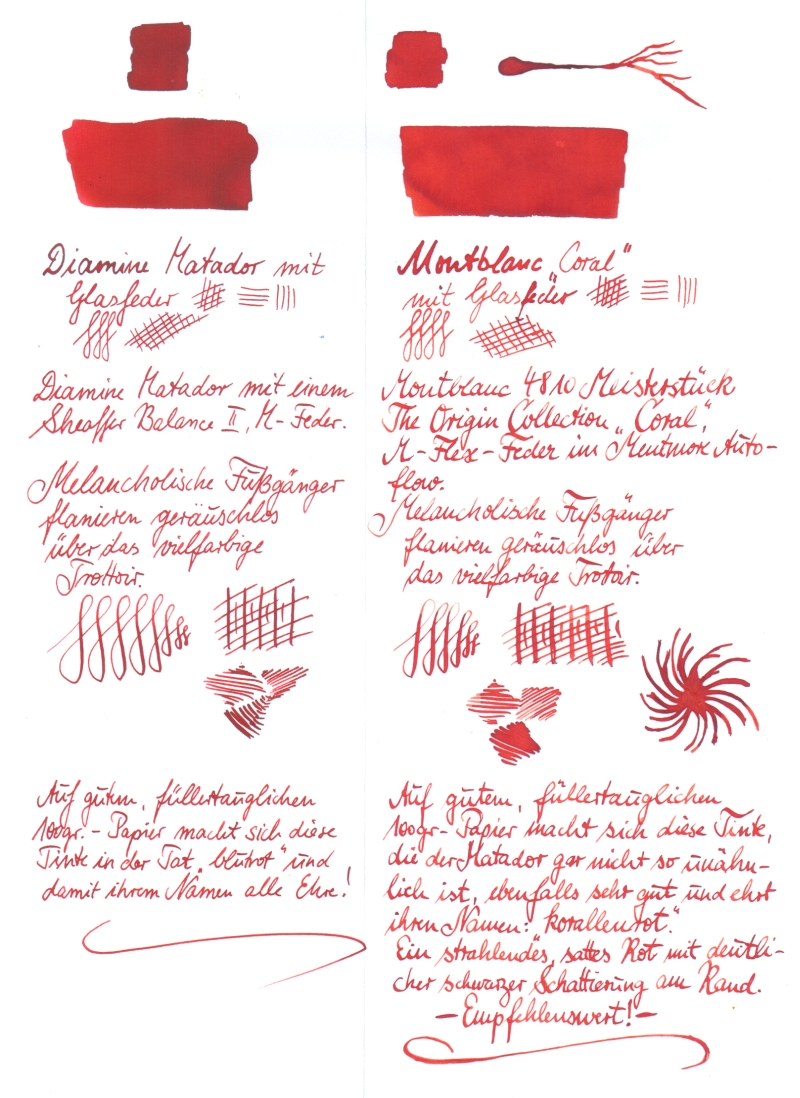 Diamine Matador mit
Glasfeder
Diamine Matador mit einem
Sheaffer Balance II, M-Feder.
Melancholische Fußgänger
flanieren geräuschlos
über das vielfarbige
Trottoir.
Auf gutem, füllertauglichen
100gr.- Papier macht sich diese
Tinte in der Tat „blutrot" und
damit ihrem Namen alle Ehre!
Montblanc „Coral"
mit Glasfeder
Montblanc 4810 Meisterstück
The Origin Collection „Coral",
M-Flex-Feder im Mentmore Auto-
flow.
Melancholische Fußgänger
flanieren geräuschlos über
das vielfarbige Trotoir.
Auf gutem, füllertauglichen
100gr- Papier macht sich diese Tinte,
die der Matador gar nicht so unähn-
lich ist, ebenfalls sehr gut und ehrt
ihren Namen: „korallenrot".
Ein strahlendes, sattes Rot mit deutli-
cher schwarzer Schattierung am Rand.
- Empfehlenswert! -